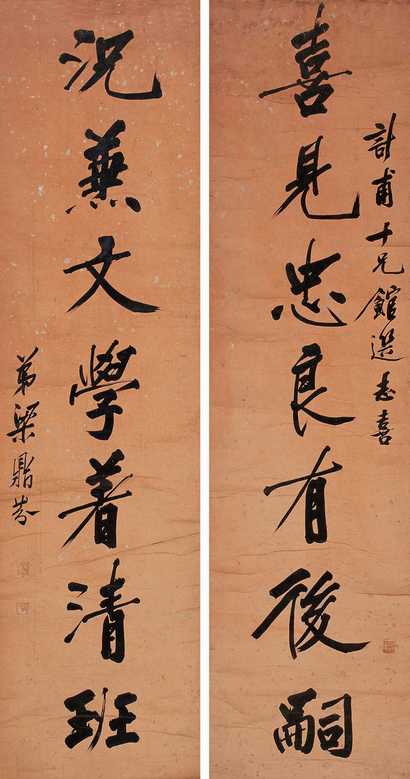 計甫十兄館選志喜
喜見忠良有後嗣
況兼文學着清班
弟梁鼎芬